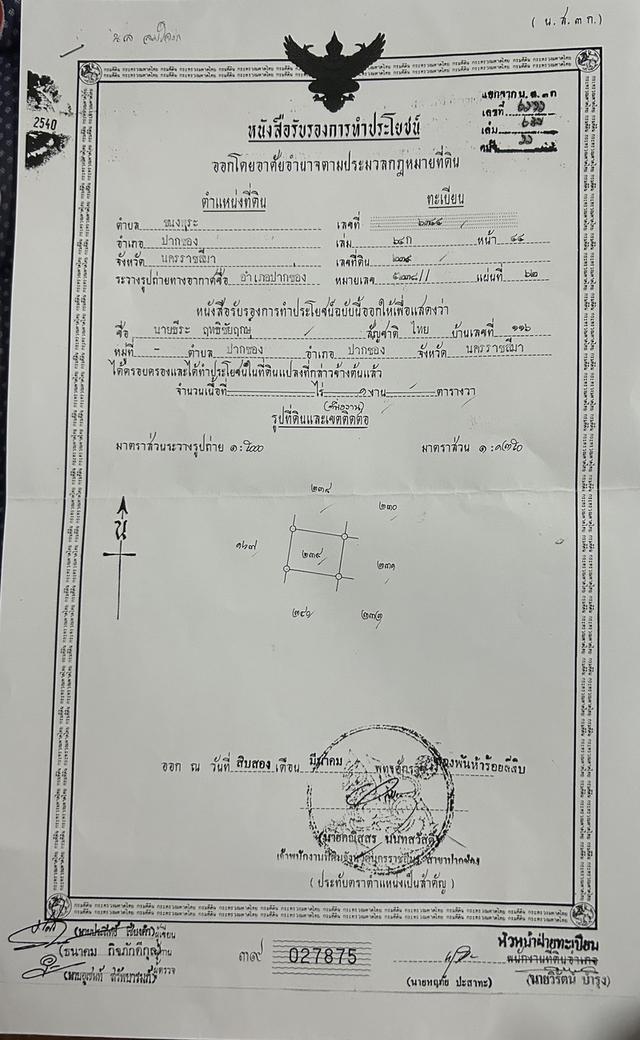 ( น.ส. ๓ ก.)
แยกจาก น.ส. ๓ ก
เลขที่
เล่ม
หน้า
2540
หนังสือรับรองการทำประโยชน์
ออกโดยอาศัยอำนาจตามประมวลกฎหมายที่ดิน
ตำแหน่งที่ดิน ทะเบียน
ตำบล ขนงพระ เลขที่
อำเภอ ปากช่อง เล่ม ๒๔ก หน้า ๔๔
จังหวัด นครราชสีมา เลขที่ดิน ๒๓๙
ระวางรูปถ่ายทางอากาศชื่อ อำเภอปากช่อง หมายเลข ๕๒๓๘ II แผ่นที่ ๖๒
หนังสือรับรองการทำประโยชน์ฉบับนี้ออกให้เพื่อแสดงว่า
ชื่อ นายธีระ ฤทธิชัยฤกษ์ สัญชาติ ไทย บ้านเลขที่ ๑๑๖
หมู่ที่ - ตำบล ปากช่อง อำเภอ ปากช่อง จังหวัด นครราชสีมา
ได้ครอบครองและได้ทำประโยชน์ในที่ดินแปลงที่กล่าวข้างต้นแล้ว
จำนวนเนื้อที่ - ไร่ ๑ งาน - ตารางวา
(หนึ่งงาน)
รูปที่ดินและเขตติดต่อ
มาตราส่วนระวางรูปถ่าย ๑: มาตราส่วน ๑:
น
๒๓๘
๒๓๐
๑๖๗
๒๓๙
๒๓๑
ออก ณ วันที่ สิบสอง เดือน มีนาคม พุทธศักราช สองพันห้าร้อยสี่สิบ
เจ้าพนักงานที่ดินจังหวัดนครราชสีมา สาขาปากช่อง
( ประทับตราตำแหน่งเป็นสำคัญ )
๓๙ 027875
หัวหน้าฝ่ายทะเบียน
พนักงานที่ดินอำเภอ
(นายหฤทัย ปะสาทะ) (นายวิรัตน์ บำรุง)